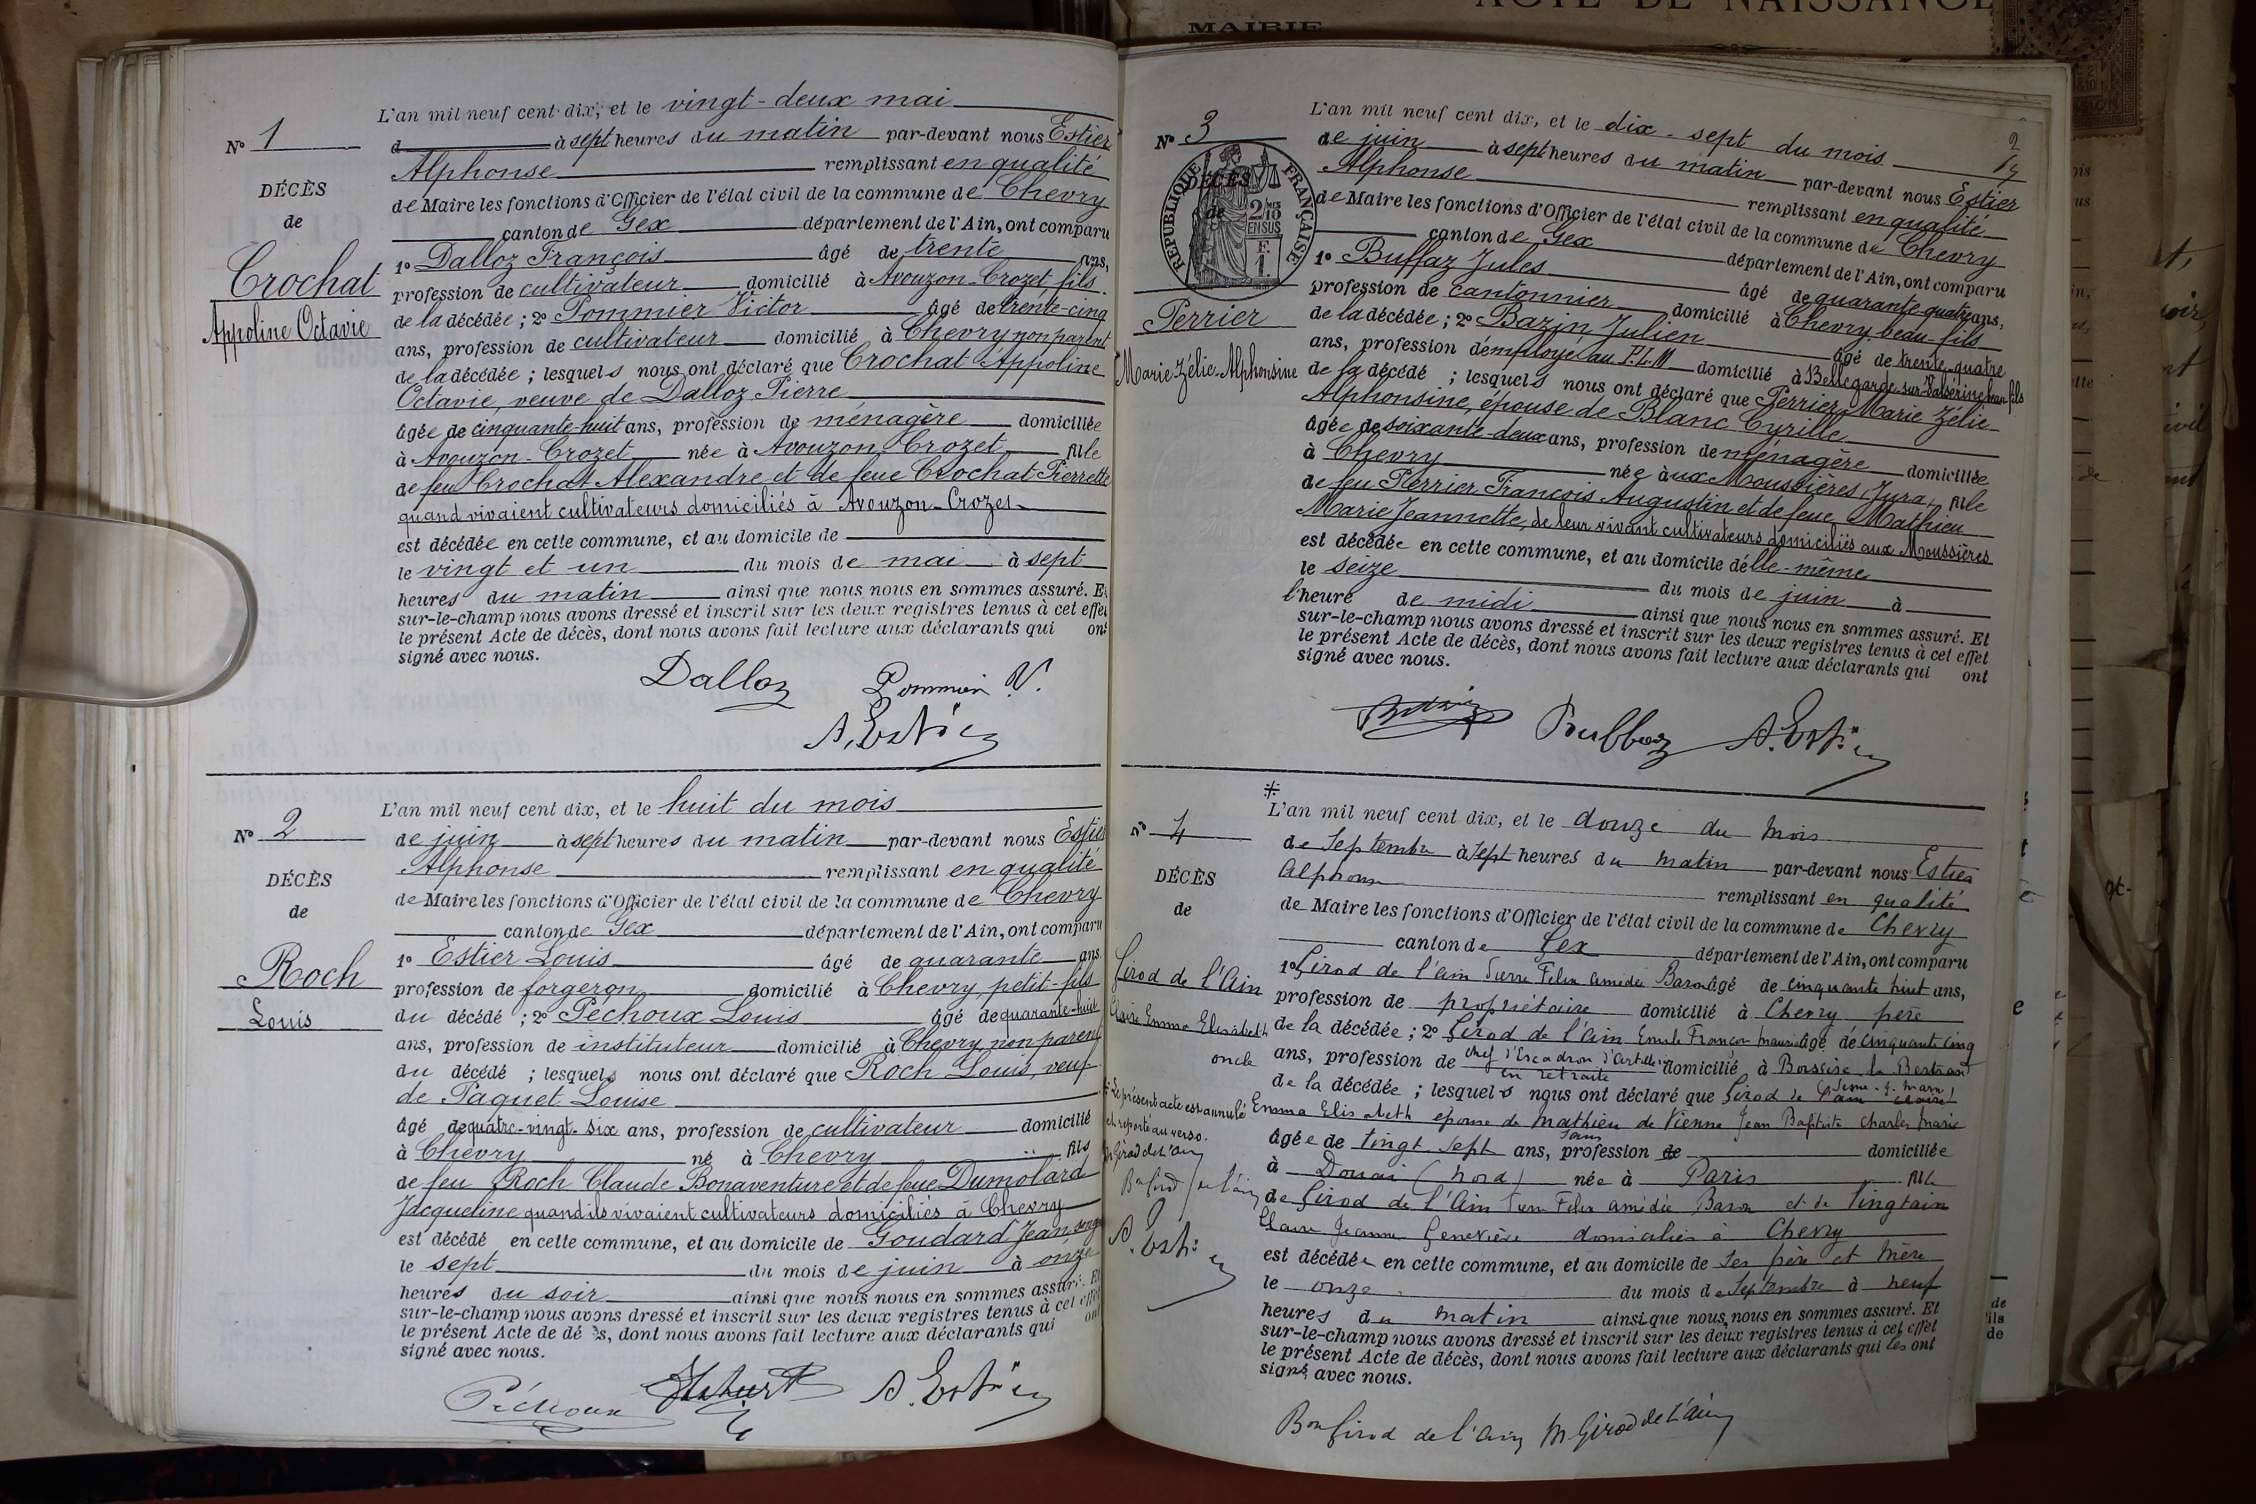 L'an mil neuf cent dix, et le vingt-deux mai
N° 1
d à sept heures du matin par-devant nous Estier
Alphonse remplissant en qualité
DÉCÈS
de Maire les fonctions d'Officier de l'état civil de la commune de Chevry
de
canton de Gex département de l'Ain, ont comparu
1° Dalloz François âgé de trente ans,
Crochat
profession de cultivateur domicilié à Avouzon-Crozet fils
Appoline Octavie
de la décédée ; 2° Pommier Victor âgé de trente-cinq
ans, profession de cultivateur domicilié à Chevry non parent
de la décédée ; lesquels nous ont déclaré que Crochat Appoline
Octavie, veuve de Dalloz Pierre
âgée de cinquante-huit ans, profession de ménagère domiciliée
à Avouzon-Crozet née à Avouzon-Crozet fille
de feu Crochat Alexandre et de feue Crochat Pierrette
quand vivaient cultivateurs domiciliés à Avouzon-Crozet
est décédée en cette commune, et au domicile de
le vingt et un du mois de mai à sept
heures du matin ainsi que nous nous en sommes assuré. Et
sur-le-champ nous avons dressé et inscrit sur les deux registres tenus à cet effet
le présent Acte de décès, dont nous avons fait lecture aux déclarants qui ont
signé avec nous.
Dalloz Pommier V.
A. Estier
L'an mil neuf cent dix, et le huit du mois
N° 2
de juin à sept heures du matin par-devant nous Estier
Alphonse remplissant en qualité
DÉCÈS
de Maire les fonctions d'Officier de l'état civil de la commune de Chevry
de
canton de Gex département de l'Ain, ont comparu
1° Estier Louis âgé de quarante ans
Roch
profession de forgeron domicilié à Chevry, petit-fils
Louis
du décédé ; 2° Péchoux Louis âgé de quarante-huit
ans, profession de instituteur domicilié à Chevry, non parent
du décédé ; lesquels nous ont déclaré que Roch Louis, veuf
de Paquet Louise
âgé de quatre-vingt-six ans, profession de cultivateur domicilié
à Chevry né à Chevry fils
de feu Roch Claude Bonaventure et de feue Dumolard
Jacqueline quand ils vivaient cultivateurs domiciliés à Chevry
est décédé en cette commune, et au domicile de Goudard Jean
le sept du mois de juin à onze
heures du soir ainsi que nous nous en sommes assuré. Et
sur-le-champ nous avons dressé et inscrit sur les deux registres tenus à cet effet
le présent Acte de décès, dont nous avons fait lecture aux déclarants qui ont
signé avec nous.
Péchoux A. Estier
MAIRIE
ACTE DE NAISSANCE
L'an mil neuf cent dix, et le dix-sept du mois
2
N° 3
de juin à sept heures du matin par-devant nous Estier
Alphonse remplissant en qualité
DÉCÈS
de
RÉPUBLIQUE FRANÇAISE
2/10 EN SUS
F. 1.
de Maire les fonctions d'Officier de l'état civil de la commune de Chevry
canton de Gex département de l'Ain, ont comparu
1° Buffaz Jules âgé de quarante-quatre ans,
Perrier
profession de cantonnier domicilié à Chevry beau-fils
Marie Zélie Alphonsine
de la décédée ; 2° Bazin Julien âgé de trente-quatre
ans, profession d'employé au P.L.M domicilié à Bellegarde-sur-Valserine beau-fils
de la décédé ; lesquels nous ont déclaré que Perrier Marie Zélie
Alphonsine, épouse de Blanc Cyrille
âgée de soixante-deux ans, profession de ménagère domiciliée
à Chevry née aux Moussières, Jura, fille
de feu Perrier François Augustin et de feue Mathieu
Marie Jeannette, de leur vivant cultivateurs domiciliés aux Moussières
est décédée en cette commune, et au domicile d'elle-même
le seize du mois de juin à
l'heure de midi ainsi que nous nous en sommes assuré. Et
sur-le-champ nous avons dressé et inscrit sur les deux registres tenus à cet effet
le présent Acte de décès, dont nous avons fait lecture aux déclarants qui ont
signé avec nous.
Buffaz A. Estier
*
L'an mil neuf cent dix, et le douze du mois
N° 4
de Septembre à sept heures du matin par-devant nous Estier
Alphonse remplissant en qualité
DÉCÈS
de Maire les fonctions d'Officier de l'état civil de la commune de Chevry
de
canton de Gex département de l'Ain, ont comparu
Girod de l'Ain
1° Girod de l'Ain Pierre Félix Amédée Baron âgé de cinquante huit ans,
profession de propriétaire domicilié à Chevry père
Claire Emma Elisabeth
de la décédée ; 2° Girod de l'Ain Emile François Maurice âgé de cinquante cinq
oncle
ans, profession de chef d'Escadron d'artillerie en retraite domicilié à Boissise la Bertrand (Seine-&-Marne)
de la décédée ; lesquels nous ont déclaré que Girod de l'Ain Claire
* Le présent acte est annulé
Emma Elisabeth épouse de Mathieu de Vienne Jean Baptiste Charles Marie
et reporté au verso.
âgée de vingt sept ans, sans profession de domiciliée
M Girod de l'Ain
à Douai (Nord) née à Paris fille
Bon Girod de l'Ain
de Girod de l'Ain Pierre Félix Amédée Baron et de Vingtain
Claire Jeanne Geneviève domiciliés à Chevry
A. Estier
est décédée en cette commune, et au domicile de ses père et mère
le onze du mois de Septembre à neuf
heures du matin ainsi que nous nous en sommes assuré. Et
sur-le-champ nous avons dressé et inscrit sur les deux registres tenus à cet effet
le présent Acte de décès, dont nous avons fait lecture aux déclarants qui les ont
signé avec nous.
Bon Girod de l'Ain M Girod de l'Ain